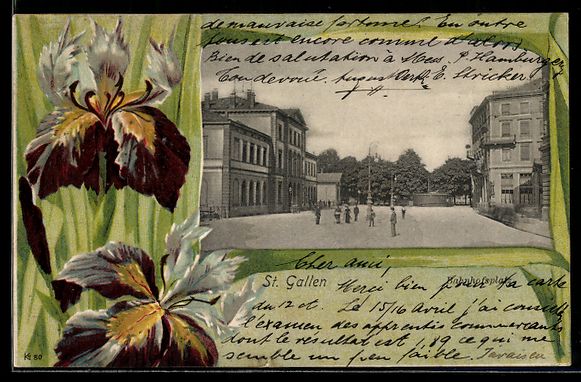 de mauvaise fortune!. En outre
tous est encore comme d'alors.
Bien de salutation à Mess. P. Hamburger,
Ton dévoué, August E. Stricker
St. Gallen
Bahnhofsplatz
Cher ami,
Merci bien pour ta carte
du 12 ct. Le 15/16 Avril j'ai
l'examen des apprentis commerçants
dont le résultat est 1,89 ce qui me
semble un peu faible.
K 80